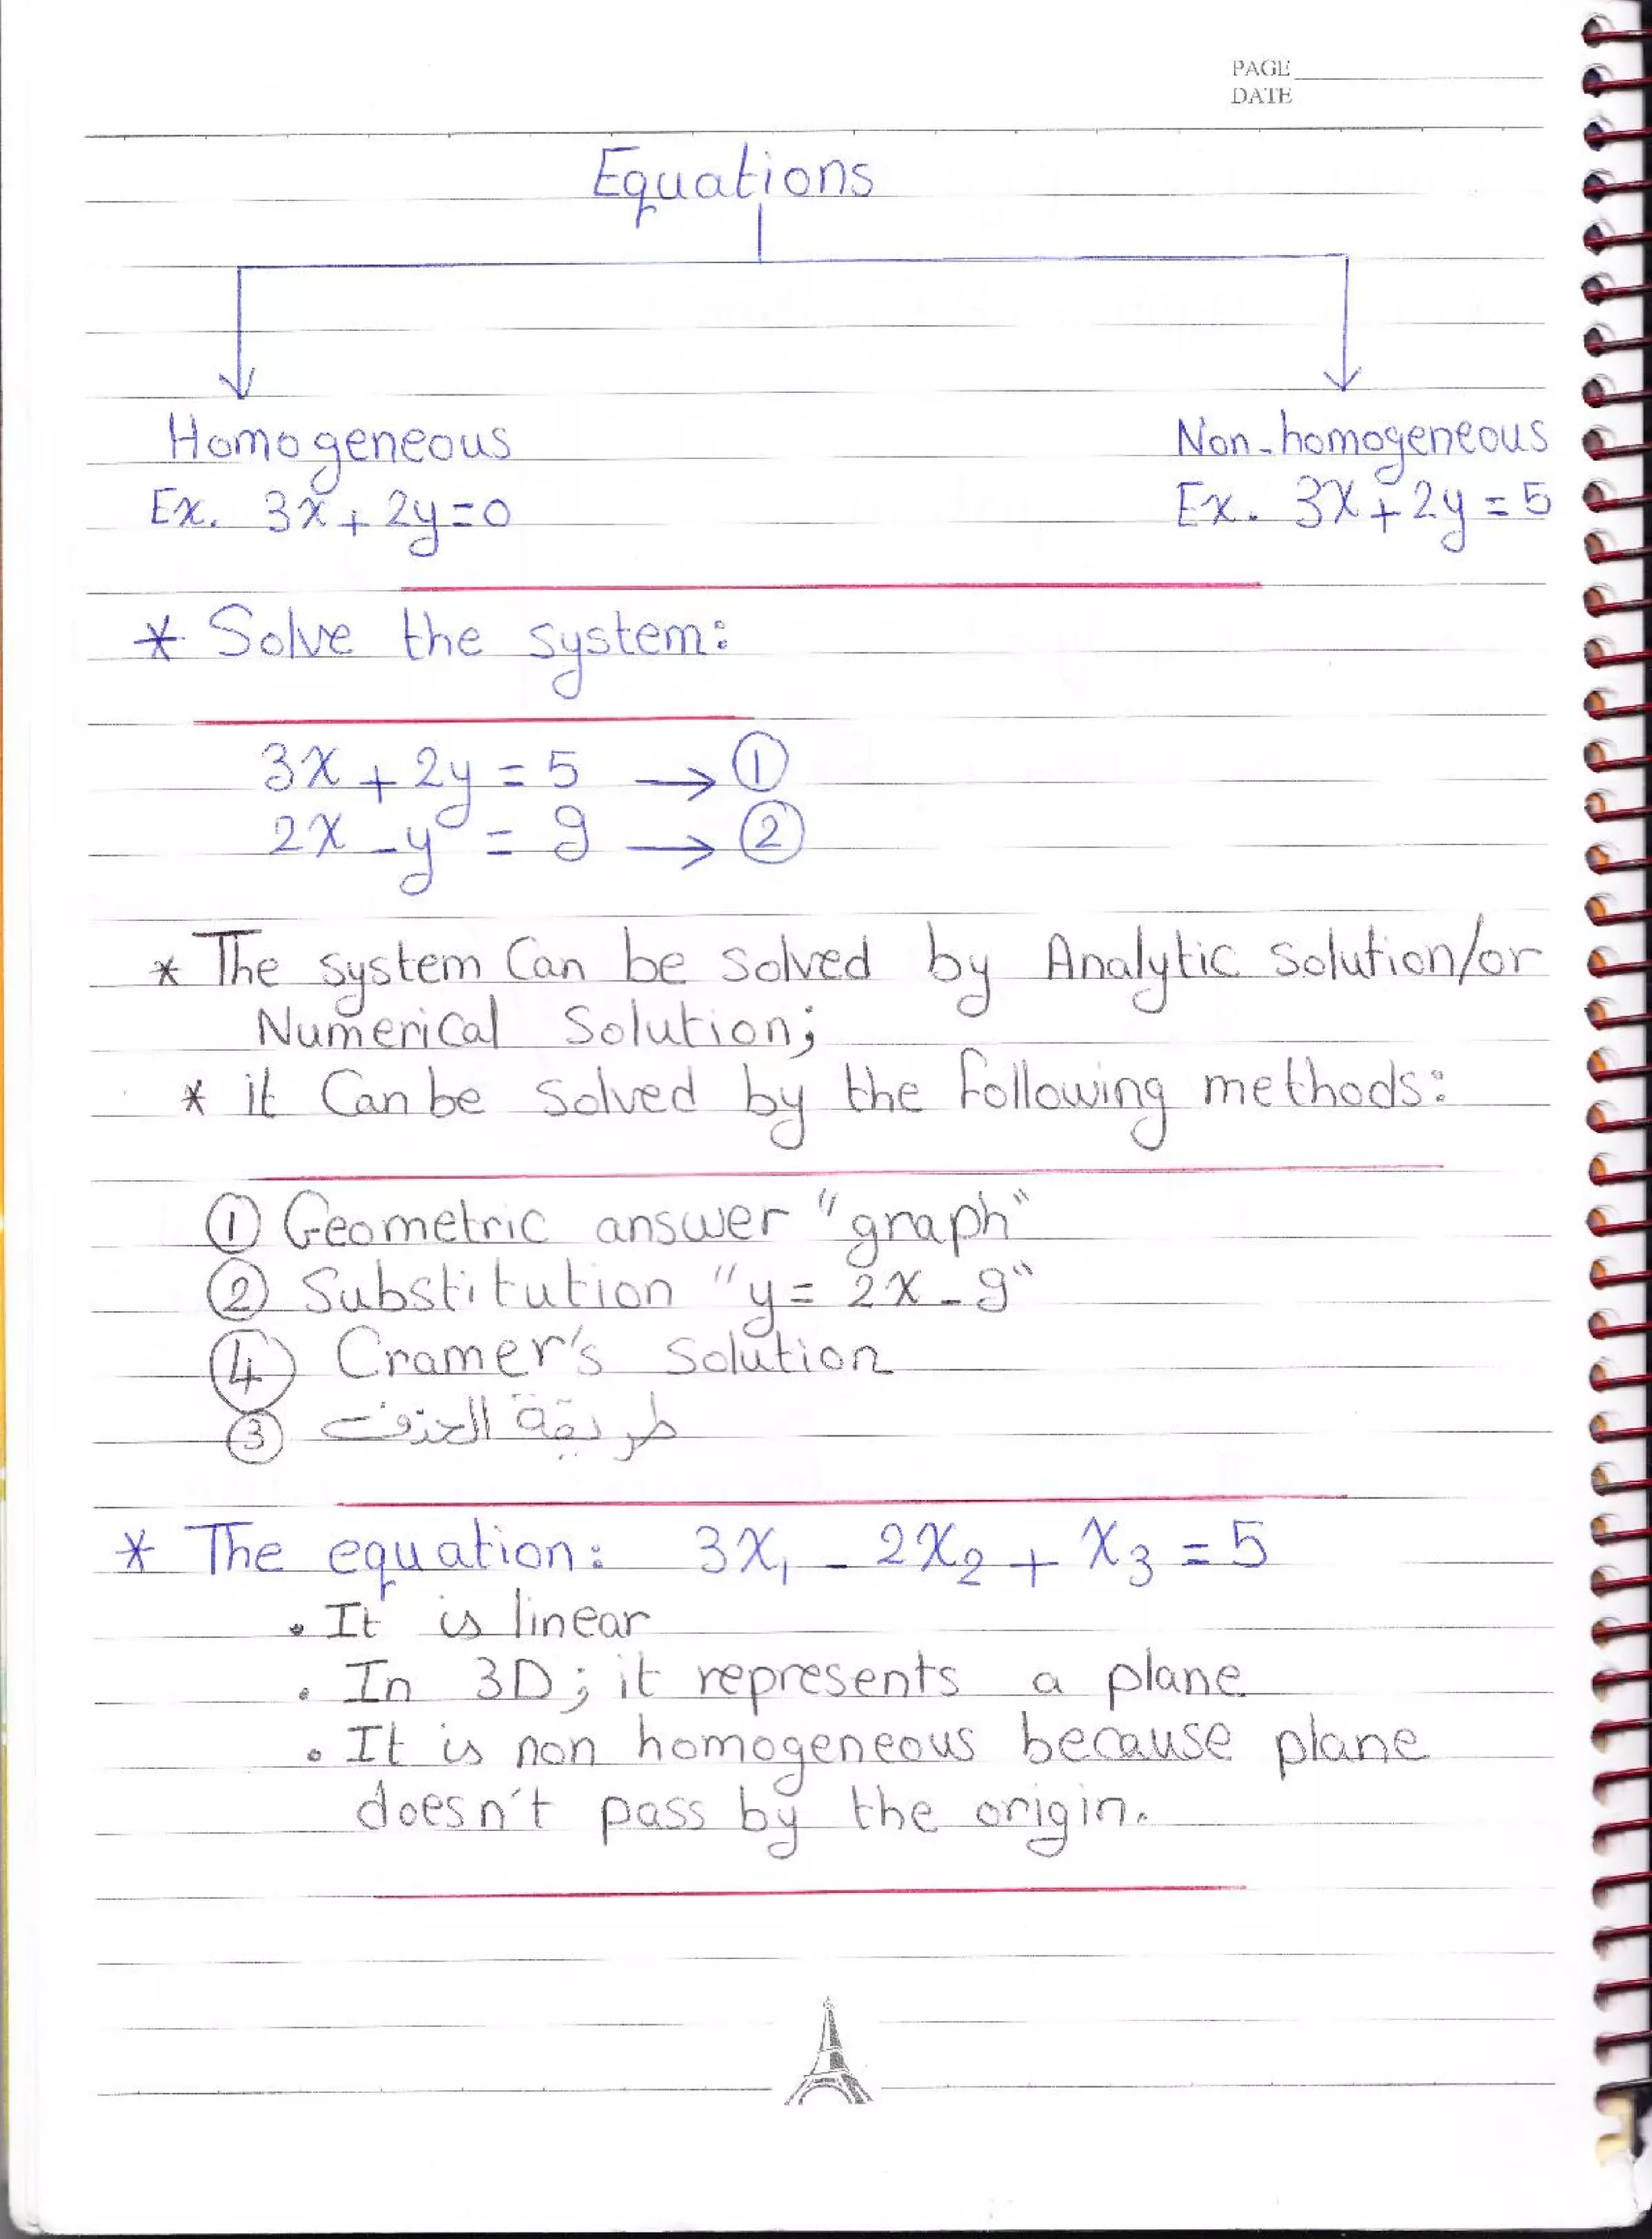 PAGE
DATE
Equations
Homogeneous
Non-homogeneous
Ex. 3x + 2y = 0
Ex. 3x + 2y = 5
* Solve the system:
3x + 2y = 5 → ①
2x - y = 9 → ②
* The system Can be Solved by Analytic Solution/or
Numerical Solution;
* it Can be Solved by the Following methods:
① Geometric answer "graph"
② Substitution "y = 2x - 9"
④ Cramer's Solution
③ طريقة الحذف
* The equation: 3x₁ - 2x₂ + x₃ = 5
• It is linear
• In 3D; it represents a plane
• It is non homogeneous because plane
doesn't pass by the origin.